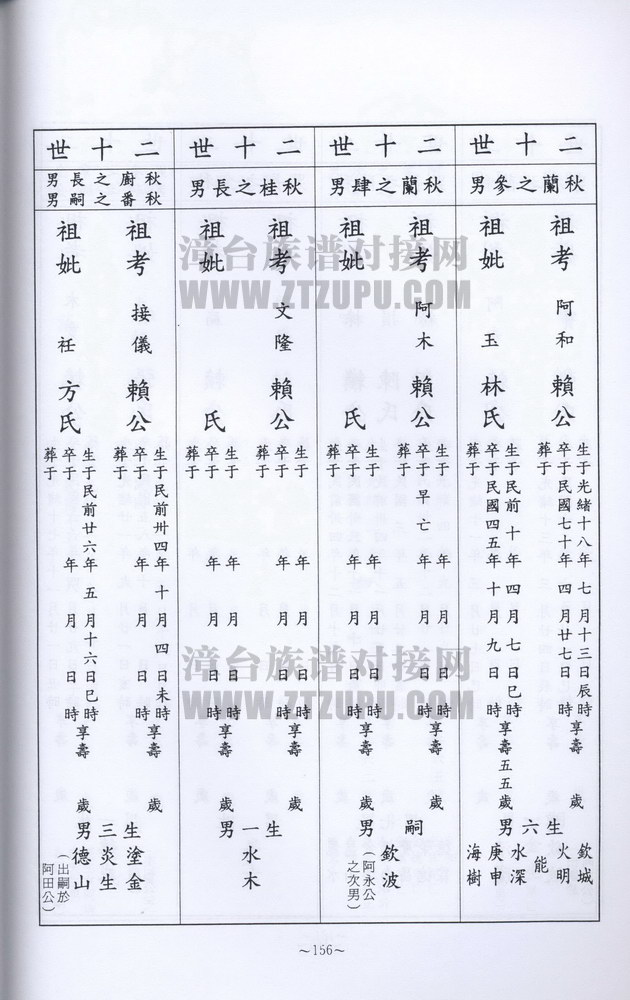 二十世
秋蘭之參男
祖考 阿和 賴公
生于光緒十八年 七月十三日辰時享壽 歲
卒于民國七十年 四月廿七日 時
葬于
祖妣 玉 林氏
生于民前 十年 四月 七日巳時享壽五五歲
卒于民國四五年 十月 九日 時
葬于
生六男
欽城
火明
能
水深
庚申
海樹
二十世
秋蘭之肆男
祖考 阿木 賴公
生于 年 月 日 時享壽 歲
卒于早亡 年 月 日 時
葬于
祖妣 氏
生于 年 月 日 時享壽 歲
卒于 年 月 日 時
葬于
嗣男
欽波
(阿永公之次男)
二十世
秋桂之長男
祖考 文隆 賴公
生于 年 月 日 時享壽 歲
卒于 年 月 日 時
葬于
祖妣 氏
生于 年 月 日 時享壽 歲
卒于 年 月 日 時
葬于
生一男
水木
二十世
秋廚之長男
秋番之嗣男
祖考 接儀 賴公
生于民前卅四年 十月 四日未時享壽 歲
卒于 年 月 日 時
葬于
祖妣 衽 方氏
生于民前廿六年 五月十六日巳時享壽 歲
卒于 年 月 日 時
葬于
生三男
塗金
炎生
德山
(出嗣於阿田公)
~156~
漳台族谱对接网
WWW.ZTZUPU.COM
漳台族谱对接网
WWW.ZTZUPU.COM